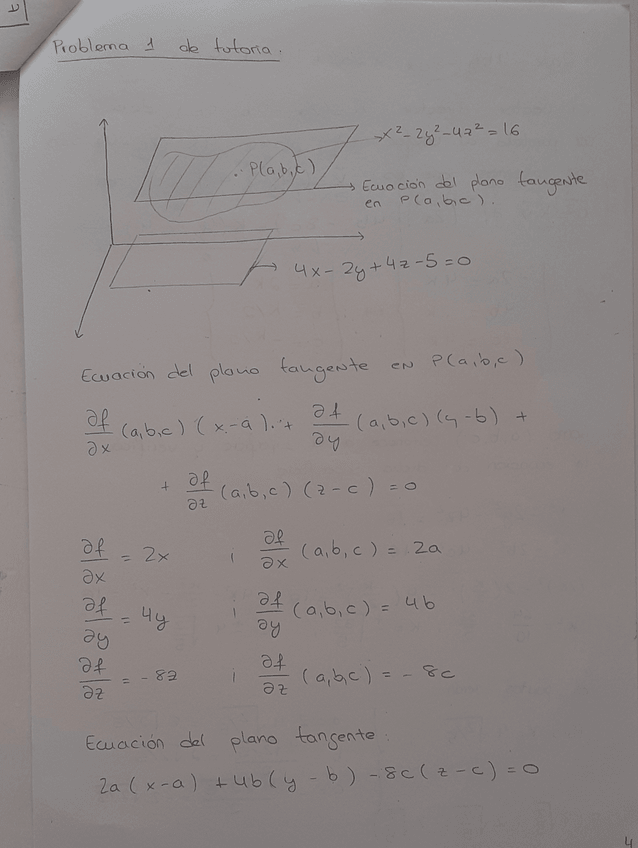 Problema 1 de tutoria.
x² - 2y² - 4z² = 16
P(a,b,c)
Ecuación del plano tangente
en P(a,b,c).
4x - 2y + 4z - 5 = 0
Ecuación del plano tangente en P(a,b,c)
∂f/∂x (a,b,c) (x-a) + ∂f/∂y (a,b,c) (y-b) +
+ ∂f/∂z (a,b,c) (z-c) = 0
∂f/∂x = 2x ; ∂f/∂x (a,b,c) = 2a
∂f/∂y = 4y ; ∂f/∂y (a,b,c) = 4b
∂f/∂z = -8z ; ∂f/∂z (a,b,c) = -8c
Ecuación del plano tangente:
2a(x-a) + 4b(y-b) - 8c(z-c) = 0
4